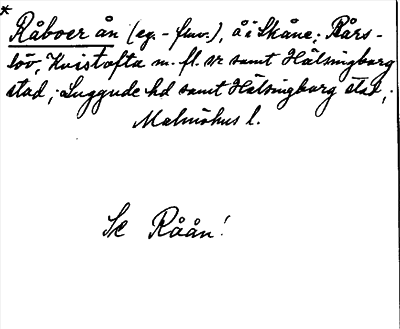 *
Råboer ån (eg.-fluv.), å i Skåne; Bårs-
löv, Kvistofta m. fl. sr samt Hälsingborg
stad; Luggude hd samt Hälsingborg stad;
Malmöhus l.
Se Råån!